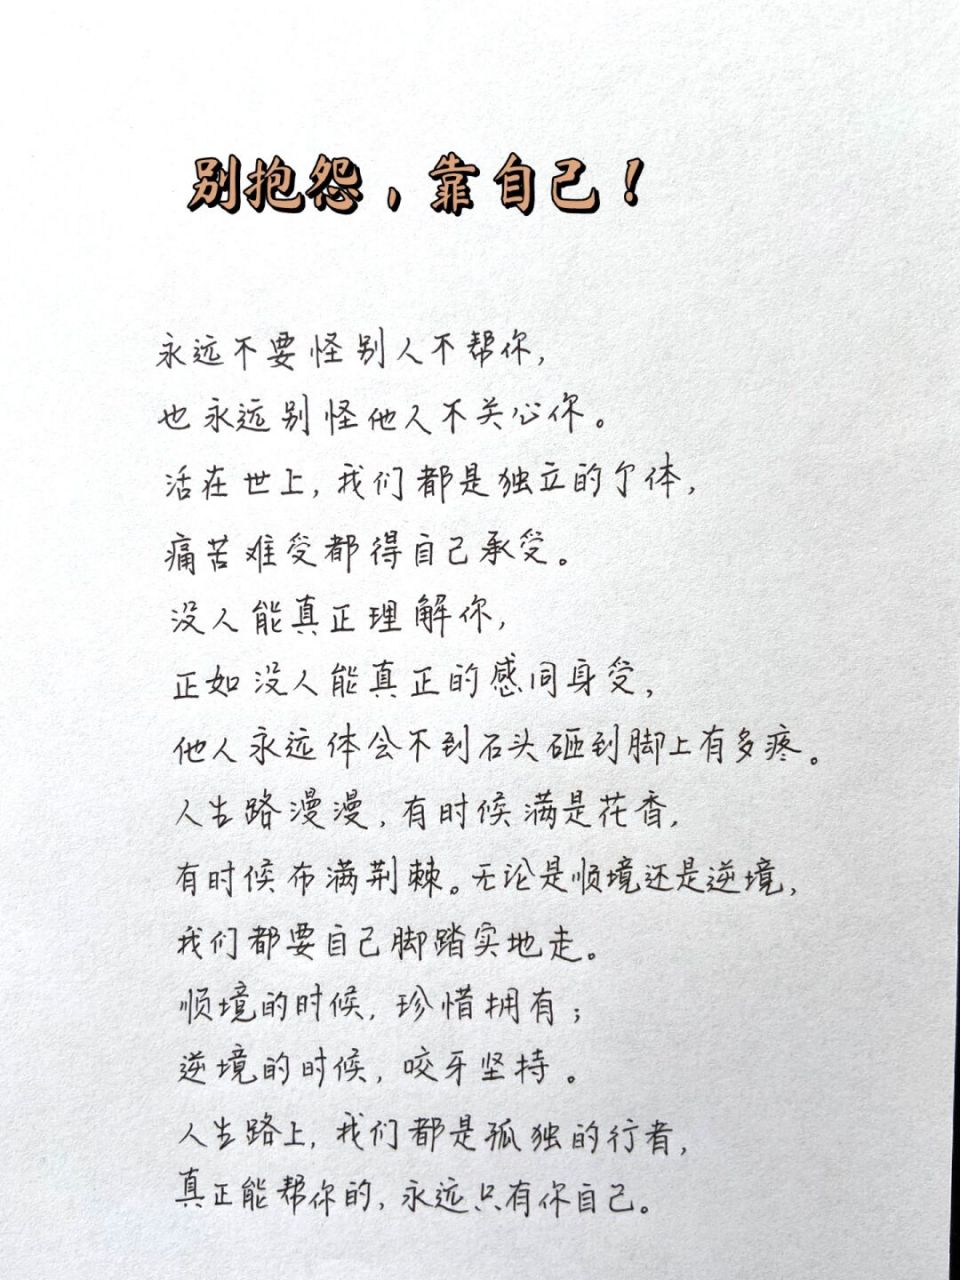 别抱怨，靠自己！
永远不要怪别人不帮你，
也永远别怪他人不关心你。
活在世上，我们都是独立的个体，
痛苦难受都得自己承受。
没人能真正理解你，
正如没人能真正的感同身受，
他人永远体会不到石头砸到脚上有多疼。
人生路漫漫，有时候满是花香，
有时候布满荆棘。无论是顺境还是逆境，
我们都要自己脚踏实地走。
顺境的时候，珍惜拥有；
逆境的时候，咬牙坚持。
人生路上，我们都是孤独的行者，
真正能帮你的，永远只有你自己。